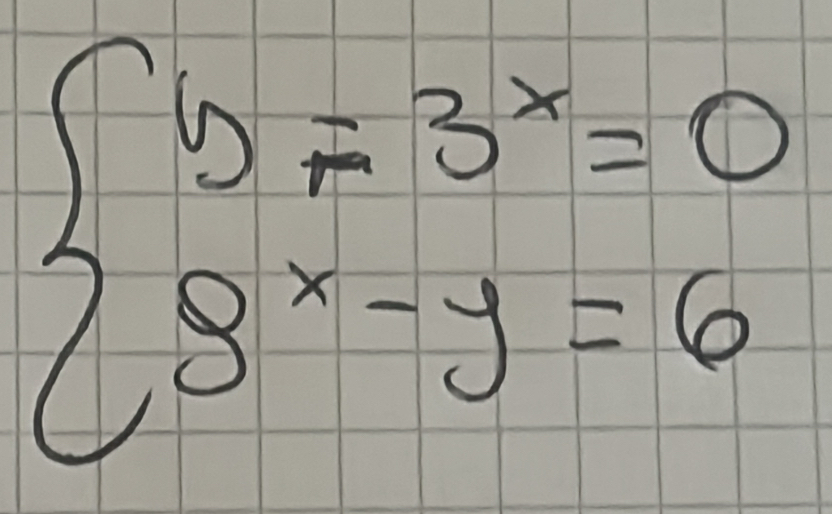 y = 3ˣ = 0
9ˣ - y = 6